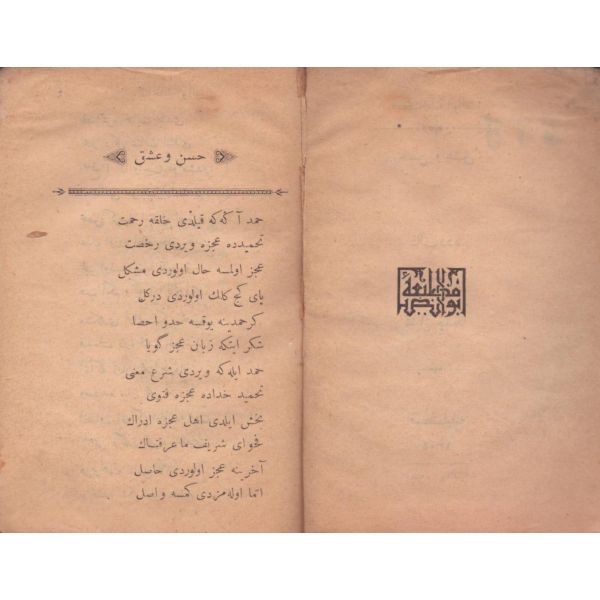 مطبعهٔ ابوالضیا
حسن و عشق
حمد آ كه كه قیلدی خلقه رحمت
تحمیدده عجزه ویردی رخصت
عجز اولمسه حال اولوردی مشكل
پای كج كلك اولوردی در كل
كر حمدینه یوقسه حد و احصا
شكر ایتكه زبان عجز كویا
حمد ایله كه ویردی شرع معنی
تحمید خداده عجزه فتوی
بخش ایلدی اهل عجزه ادراك
فحوای شریف ما عرفناك
آخرینه عجز اولوردی حاصل
اتما اوله مزدی كمسه واصل